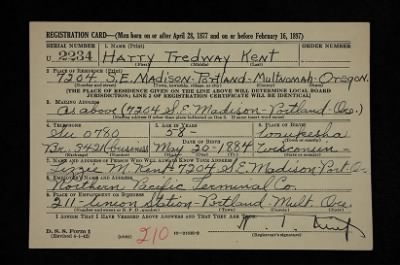 REGISTRATION CARD—(Men born on or after April 28, 1877 and on or before February 16, 1897)
SERIAL NUMBER 1. NAME (Print) ORDER NUMBER
U 2234 Harry Tredway Kent
(First) (Middle) (Last)
2. PLACE OF RESIDENCE (Print)
7204 S.E. Madison-Portland-Multnomah-Oregon.
(Number and street) (Town, township, village, or city) (County) (State)
[THE PLACE OF RESIDENCE GIVEN ON THE LINE ABOVE WILL DETERMINE LOCAL BOARD
JURISDICTION; LINE 2 OF REGISTRATION CERTIFICATE WILL BE IDENTICAL]
3. MAILING ADDRESS
As above (7204 S.E. Madison-Portland Ore.)
[Mailing address if other than place indicated on line 2. If same insert word same]
4. TELEPHONE 5. AGE IN YEARS 6. PLACE OF BIRTH
0780 58- Waukesha
DATE OF BIRTH (Town or county)
Br. 3421 (business) May 20-1884 Wisconsin-
(Exchange) (Number) (Mo.) (Day) (Yr.) (State or country)
7. NAME AND ADDRESS OF PERSON WHO WILL ALWAYS KNOW YOUR ADDRESS
Lizzie M. Kent-7204 S.E. Madison Port-Or.
8. EMPLOYER'S NAME AND ADDRESS
Northern Pacific Terminal Co.
9. PLACE OF EMPLOYMENT OR BUSINESS
211-Union Station-Portland-Mult. Ore.
(Number and street or R. F. D. number) (Town) (County) (State)
I AFFIRM THAT I HAVE VERIFIED ABOVE ANSWERS AND THAT THEY ARE TRUE.
D. S. S. Form 1
(Revised 4-1-42) (over) 210 H. T. Kent
(Registrant's signature)